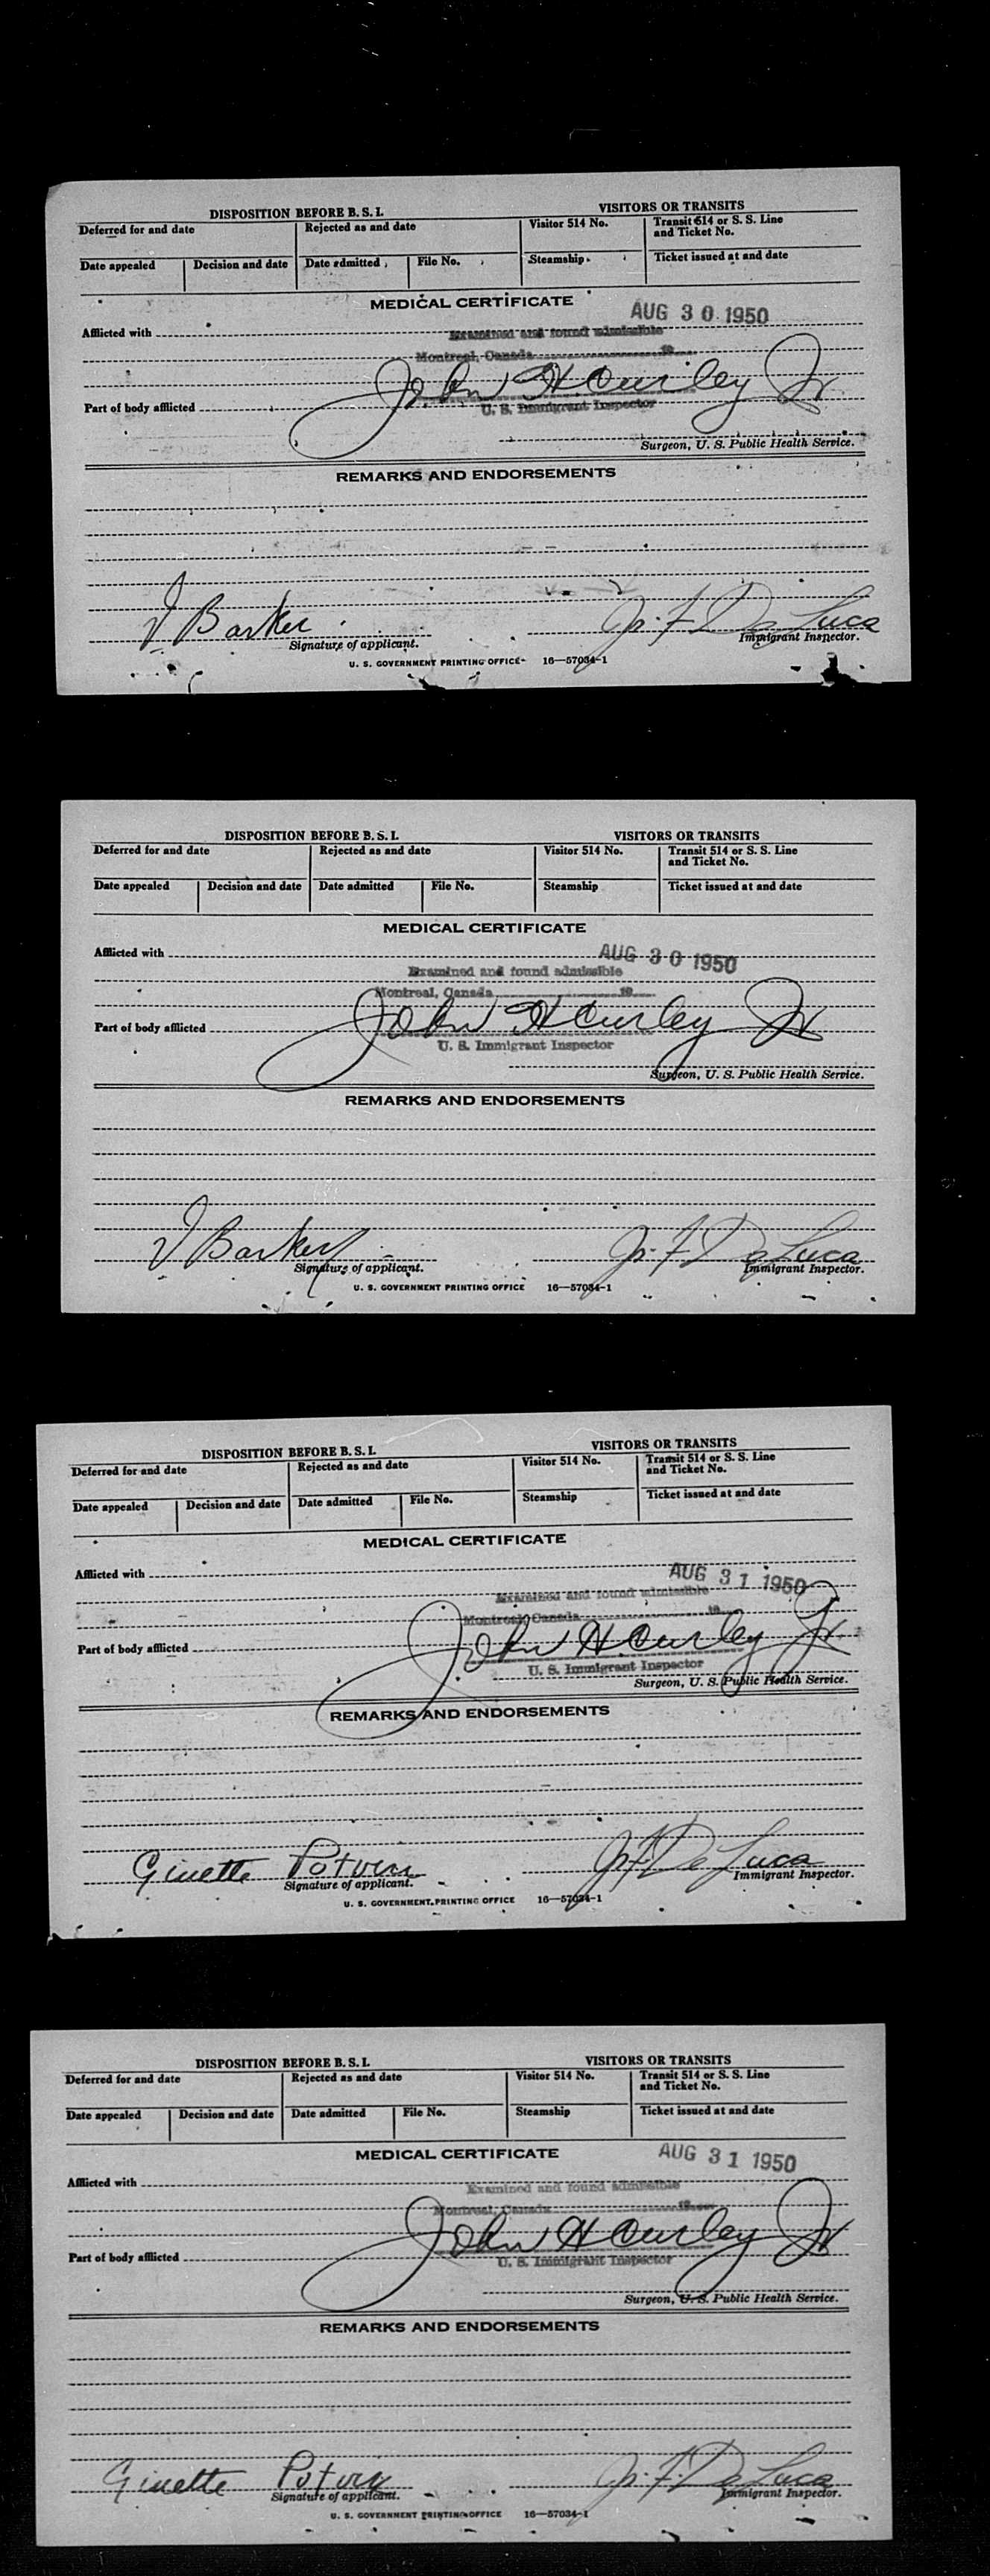 DISPOSITION BEFORE B. S. I. VISITORS OR TRANSITS
Deferred for and date Rejected as and date Visitor 514 No. Transit 514 or S. S. Line and Ticket No.
Date appealed Decision and date Date admitted File No. Steamship Ticket issued at and date
MEDICAL CERTIFICATE
AUG 30 1950
Afflicted with
Examined and found admissible
Montreal, Canada 19
John H Curley Jr.
Part of body afflicted
U. S. Immigrant Inspector
Surgeon, U. S. Public Health Service.
REMARKS AND ENDORSEMENTS
J Barker De Luca
Signature of applicant. Immigrant Inspector.
U. S. GOVERNMENT PRINTING OFFICE 16—57034-1
DISPOSITION BEFORE B. S. I. VISITORS OR TRANSITS
Deferred for and date Rejected as and date Visitor 514 No. Transit 514 or S. S. Line and Ticket No.
Date appealed Decision and date Date admitted File No. Steamship Ticket issued at and date
MEDICAL CERTIFICATE
Afflicted with AUG 30 1950
Examined and found admissible
Montreal, Canada 19
Part of body afflicted John H Curley Jr
U. S. Immigrant Inspector
Surgeon, U. S. Public Health Service.
REMARKS AND ENDORSEMENTS
J Barker De Luca
Signature of applicant. Immigrant Inspector.
U. S. GOVERNMENT PRINTING OFFICE 16—57034-1
DISPOSITION BEFORE B. S. I. VISITORS OR TRANSITS
Deferred for and date Rejected as and date Visitor 514 No. Transit 514 or S. S. Line and Ticket No.
Date appealed Decision and date Date admitted File No. Steamship Ticket issued at and date
MEDICAL CERTIFICATE
Afflicted with AUG 31 1950
Examined and found admissible
Montreal, Canada 19
Part of body afflicted John H Curley Jr.
U. S. Immigrant Inspector
Surgeon, U. S. Public Health Service.
REMARKS AND ENDORSEMENTS
Ginette Potvin De Luca
Signature of applicant. Immigrant Inspector.
U. S. GOVERNMENT PRINTING OFFICE 16—57034-1
DISPOSITION BEFORE B. S. I. VISITORS OR TRANSITS
Deferred for and date Rejected as and date Visitor 514 No. Transit 514 or S. S. Line and Ticket No.
Date appealed Decision and date Date admitted File No. Steamship Ticket issued at and date
MEDICAL CERTIFICATE AUG 31 1950
Afflicted with
Examined and found admissible
Montreal, Canada 19
John H Curley Jr
Part of body afflicted
U. S. Immigrant Inspector
Surgeon, U. S. Public Health Service.
REMARKS AND ENDORSEMENTS
Ginette Potvin De Luca
Signature of applicant. Immigrant Inspector.
U. S. GOVERNMENT PRINTING OFFICE 16—57034-1